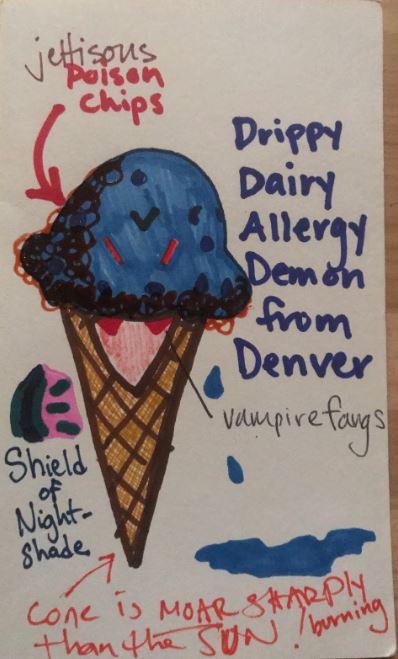 jettisons
Poison
Chips
Drippy
Dairy
Allergy
Demon
from
Denver
vampire fangs
Shield
of
Night-
shade
Cone is MOAR SHARPLY
than the SUN! burning